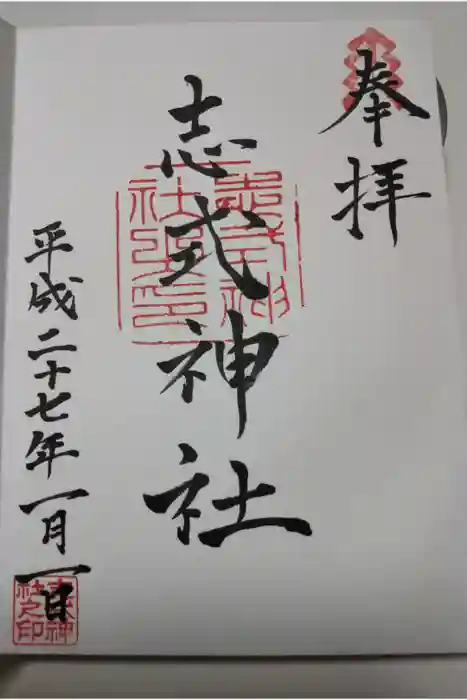 奉拝
志式神社
志式神社璽印
平成二十七年一月一日